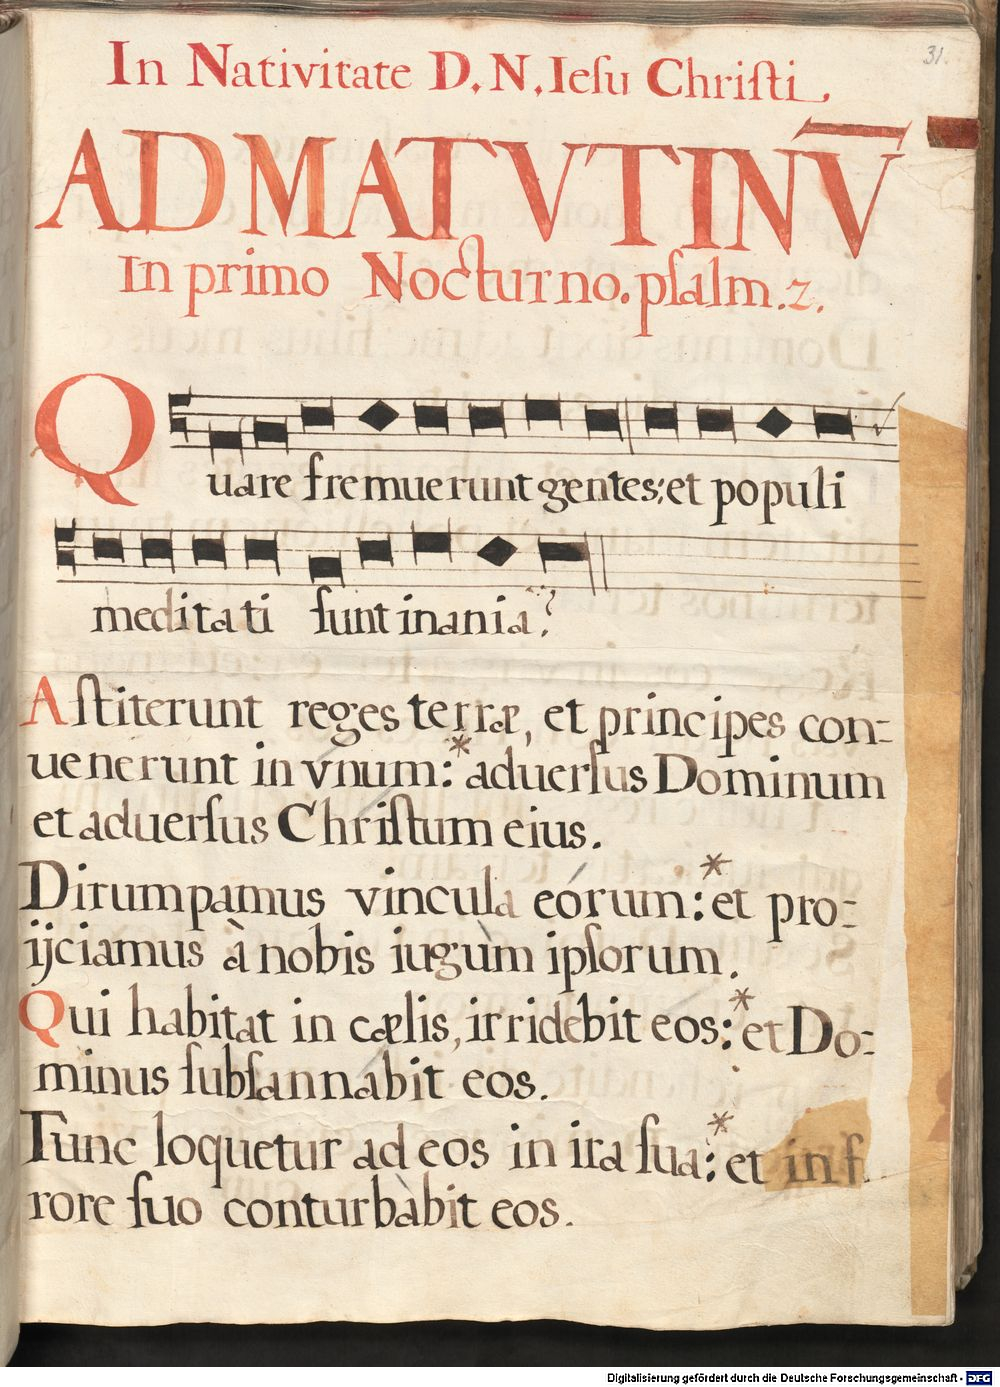 31.
In Nativitate D. N. Iesu Christi.
AD MATVTINV̄
In primo Nocturno. psalm. 2.
Quare fremuerunt gentes: et populi
meditati sunt inania?
Astiterunt reges terræ, et principes con-
uenerunt in vnum:* aduersus Dominum
et aduersus Christum eius.
Dirumpamus vincula eórum:* et pro-
ijciamus à nobis iugum ipsorum.
Qui habitat in cælis, irridebit eos:* et Do-
minus subsannabit eos.
Tunc loquetur ad eos in ira sua:* et in f
rore suo conturbabit eos.
Digitalisierung gefördert durch die Deutsche Forschungsgemeinschaft - DFG